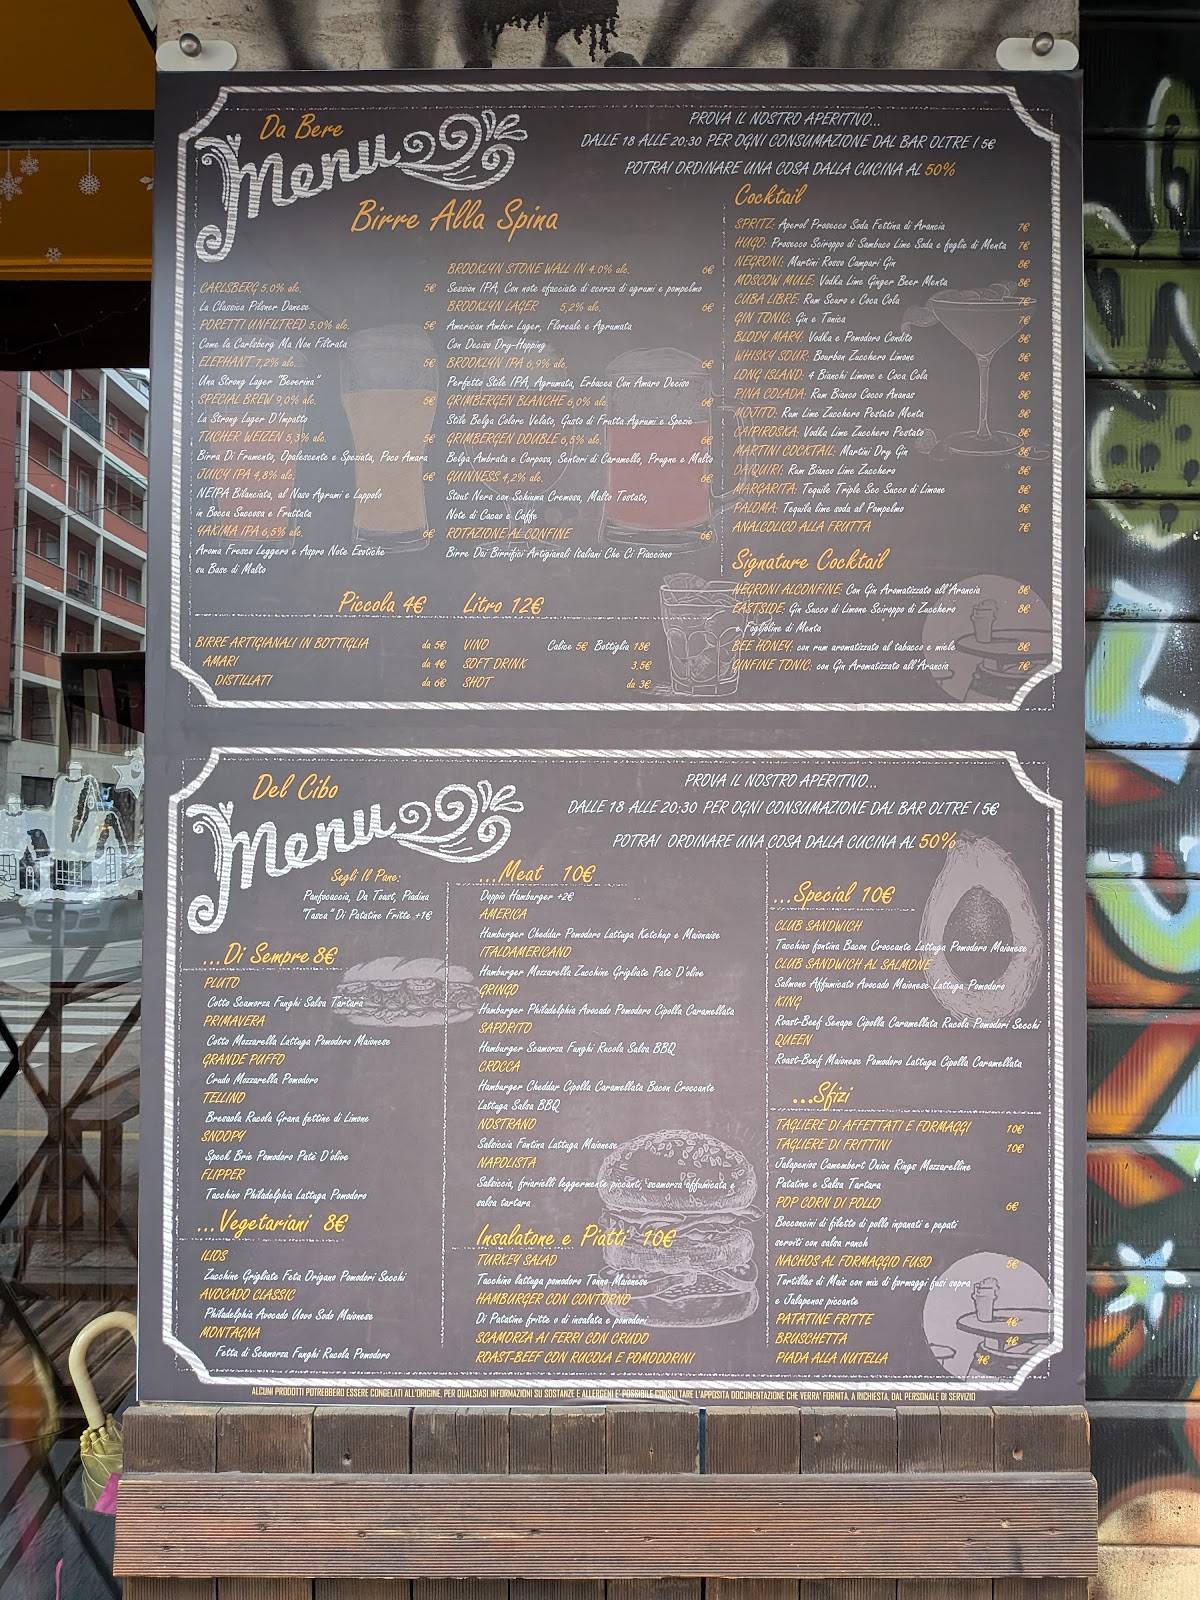 Da Bere
Menu
PROVA IL NOSTRO APERITIVO...
DALLE 18 ALLE 20:30 PER OGNI CONSUMAZIONE DAL BAR OLTRE I 5€
POTRAI ORDINARE UNA COSA DALLA CUCINA AL 50%
Birre Alla Spina
CARLSBERG 5,0% alc. 5€
La Classica Pilsner Danese
PORETTI UNFILTRED 5,0% alc. 5€
Come la Carlsberg Ma Non Filtrata
ELEPHANT 7,2% alc. 5€
Una Strong Lager "Beverina"
SPECIAL BREW 9,0% alc. 5€
La Strong Lager D'Impatto
TUCHER WEIZEN 5,3% alc. 5€
Birra Di Frumento, Opalescente e Speziata, Poco Amara
JUICY IPA 4,8% alc. 6€
NEIPA Bilanciata, al Naso Agrumi e Luppolo
in Bocca Succosa e Fruttata
YAKIMA IPA 6,5% alc. 6€
Aroma Fresco Leggero e Aspro Note Esotiche
su Base di Malto
BROOKLYN STONE WALL IN 4.0% alc. 6€
Session IPA, Con note sfacciate di scorza di agrumi e pompelmo
BROOKLYN LAGER 5,2% alc. 6€
American Amber Lager, Floreale e Agrumata
Con Deciso Dry-Hopping
BROOKLYN IPA 6,9% alc. 6€
Perfetto Stile IPA, Agrumata, Erbacea Con Amaro Deciso
GRIMBERGEN BLANCHE 6,0% alc. 6€
Stile Belga Colore Velato, Gusto di Frutta Agrumi e Spezie
GRIMBERGEN DOUBLE 6,5% alc. 6€
Belga Ambrata e Corposa, Sentori di Caramello, Prugne e Malto
GUINNESS 4,2% alc. 6€
Stout Nera con Schiuma Cremosa, Malto Tostato,
Note di Cacao e Caffe
ROTAZIONE AL CONFINE 6€
Birre Dai Birrifici Artigianali Italiani Che Ci Piacciono
Piccola 4€ Litro 12€
BIRRE ARTIGIANALI IN BOTTIGLIA da 5€
AMARI da 4€
DISTILLATI da 6€
VINO Calice 5€ Bottiglia 18€
SOFT DRINK 3.5€
SHOT da 3€
Cocktail
SPRITZ: Aperol Prosecco Soda Fettina di Arancia 7€
HUGO: Prosecco Sciroppo di Sambuco Lime Soda e foglie di Menta 7€
NEGRONI: Martini Rosso Campari Gin 8€
MOSCOW MULE: Vodka Lime Ginger Beer Menta 8€
CUBA LIBRE: Rum Scuro e Coca Cola 7€
GIN TONIC: Gin e Tonica 7€
BLODY MARY: Vodka e Pomodoro Condito 8€
WHISKY SOUR: Bourbon Zucchero Limone 8€
LONG ISLAND: 4 Bianchi Limone e Coca Cola 8€
PINA COLADA: Rum Bianco Cocco Ananas 8€
MOJITO: Rum Lime Zucchero Pestato Menta 8€
CAIPIROSKA: Vodka Lime Zucchero Pestato 8€
MARTINI COCKTAIL: Martini Dry Gin 8€
DAIQUIRI: Rum Bianco Lime Zucchero 8€
MARGARITA: Tequile Triple Sec Succo di Limone 8€
PALOMA: Tequila lime soda al Pompelmo 8€
ANALCOLICO ALLA FRUTTA 7€
Signature Cocktail
NEGRONI ALCONFINE: Con Gin Aromatizzato all'Arancia 8€
EASTSIDE: Gin Succo di Limone Sciroppo di Zucchero 8€
e Foglioline di Menta
BEE HONEY: con rum aromatizzato al tabacco e miele 8€
GINFINE TONIC: con Gin Aromatizzato all'Arancia 7€
Del Cibo
Menu
PROVA IL NOSTRO APERITIVO...
DALLE 18 ALLE 20:30 PER OGNI CONSUMAZIONE DAL BAR OLTRE I 5€
POTRAI ORDINARE UNA COSA DALLA CUCINA AL 50%
Segli Il Pane:
Panfocaccia, Da Toast, Piadina
"Tasca" Di Patatine Fritte +1€
...Di Sempre 8€
PLUTO
Cotto Scamorza Funghi Salsa Tartara
PRIMAVERA
Cotto Mozzarella Lattuga Pomodoro Maionese
GRANDE PUFFO
Crudo Mozzarella Pomodoro
TELLINO
Bresaola Rucola Grana fettine di Limone
SNOOPY
Speck Brie Pomodoro Patè D'olive
FLIPPER
Tacchino Philadelphia Lattuga Pomodoro
...Vegetariani 8€
ILIOS
Zucchine Grigliate Feta Origano Pomodori Secchi
AVOCADO CLASSIC
Philadelphia Avocado Uovo Sodo Maionese
MONTAGNA
Fetta di Scamorza Funghi Rucola Pomodoro
...Meat 10€
Doppio Hamburger +2€
AMERICA
Hamburger Cheddar Pomodoro Lattuga Ketchup e Maionaise
ITALOAMERICANO
Hamburger Mozzarella Zucchine Grigliate Patè D'olive
GRINGO
Hamburger Philadelphia Avocado Pomodoro Cipolla Caramellata
SAPORITO
Hamburger Scamorza Funghi Rucola Salsa BBQ
CROCCA
Hamburger Cheddar Cipolla Caramellata Bacon Croccante
Lattuga Salsa BBQ
NOSTRANO
Salsiccia Fontina Lattuga Maionese
NAPOLISTA
Salsiccia, friarielli leggermente piccanti, scamorza affumicata e
salsa tartara
Insalatone e Piatti 10€
TURKEY SALAD
Tacchino lattuga pomodoro Tonno Maionese
HAMBURGER CON CONTORNO
Di Patatine fritte o di insalata e pomodori
SCAMORZA AI FERRI CON CRUDO
ROAST-BEEF CON RUCOLA E POMODORINI
...Special 10€
CLUB SANDWICH
Tacchino fontina Bacon Croccante Lattuga Pomodoro Maionese
CLUB SANDWICH AL SALMONE
Salmone Affumicato Avocado Maionese Lattuga Pomodoro
KING
Roast-Beef Senape Cipolla Caramellata Rucola Pomodori Secchi
QUEEN
Roast-Beef Maionese Pomodoro Lattuga Cipolla Caramellata
...Sfizi
TAGLIERE DI AFFETTATI E FORMAGGI 10€
TAGLIERE DI FRITTINI 10€
Jalapenios Camembert Onion Rings Mozzarelline
Patatine e Salsa Tartara
POP CORN DI POLLO 6€
Bocconcini di filetto di pollo inpanati e pepati
serviti con salsa ranch
NACHOS AL FORMAGGIO FUSO 5€
Tortillas di Mais con mix di formaggi fusi sopra
e Jalapenos piccante
PATATINE FRITTE 4€
BRUSCHETTA 4€
PIADA ALLA NUTELLA 4€
ALCUNI PRODOTTI POTREBBERO ESSERE CONGELATI ALL'ORIGINE, PER QUALSIASI INFORMAZIONI SU SOSTANZE E ALLERGENI E' POSSIBILE CONSULTARE L'APPOSITA DOCUMENTAZIONE CHE VERRA' FORNITA, A RICHIESTA, DAL PERSONALE DI SERVIZIO